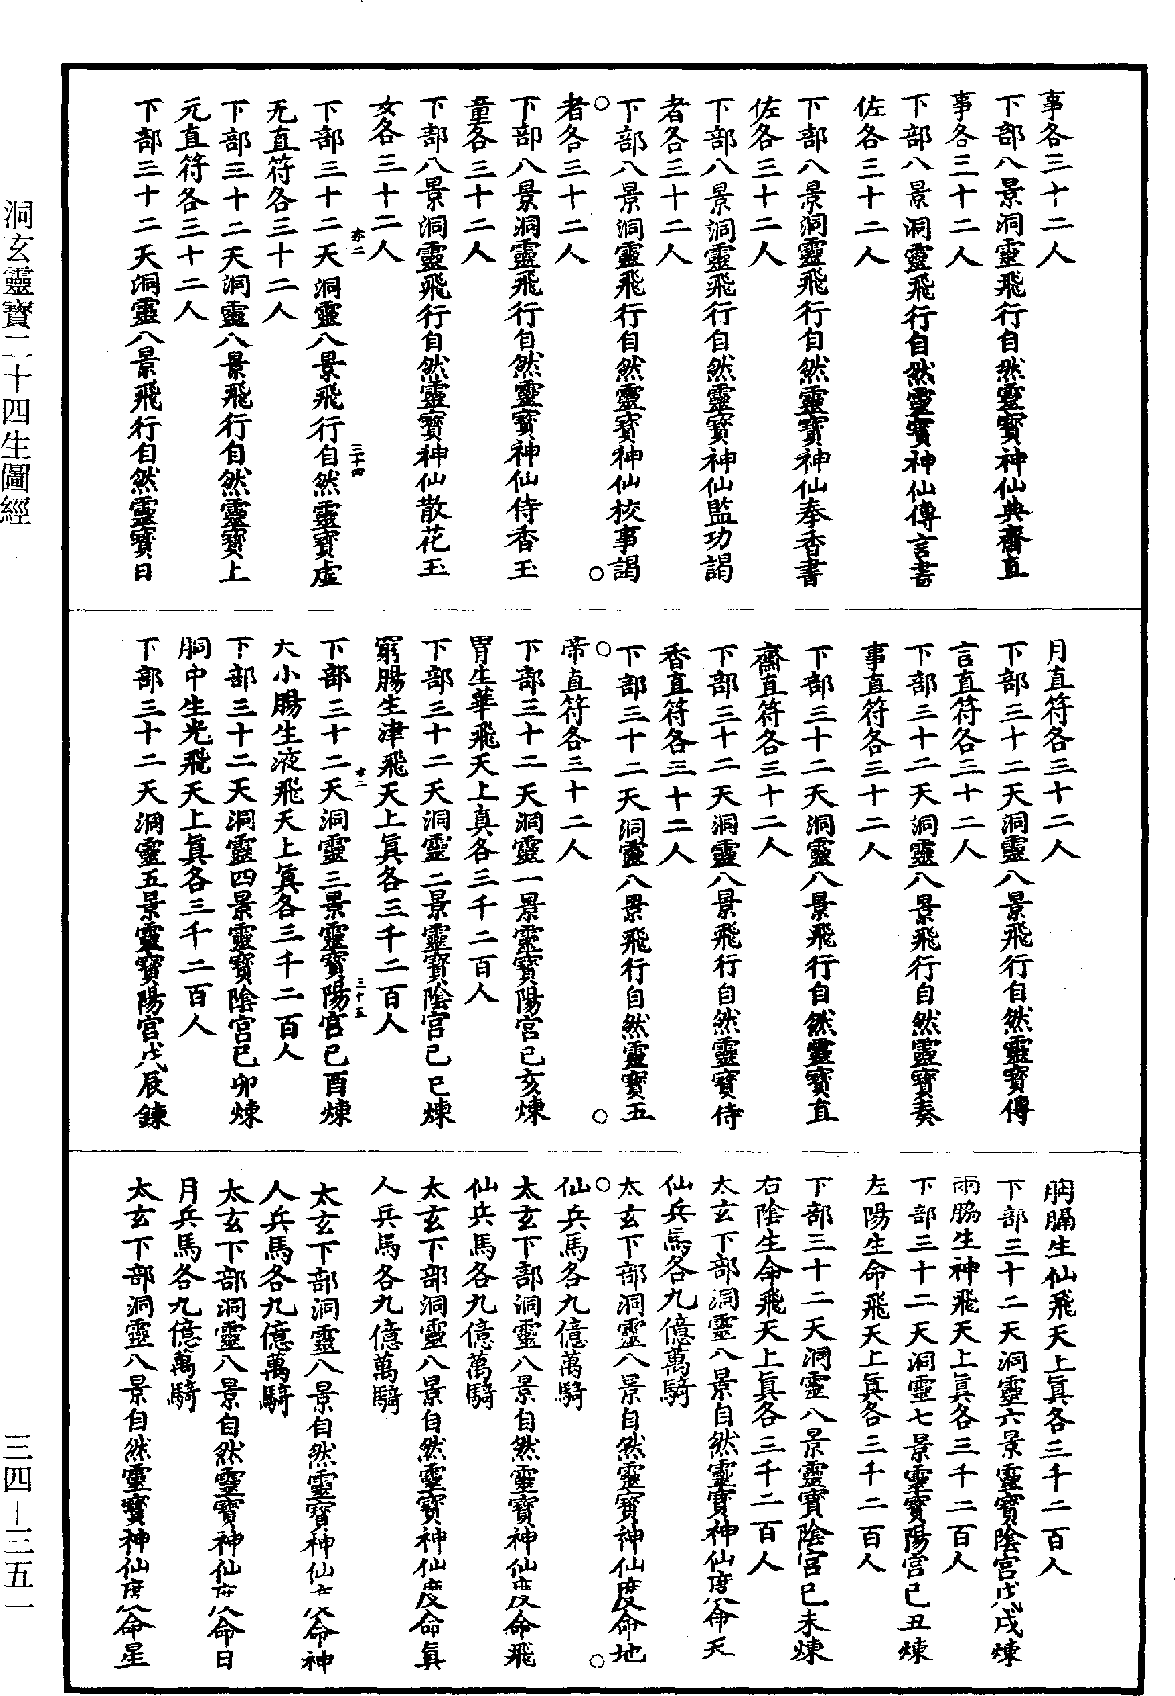 事各三十二人
下部八景洞靈飛行自然靈寶神仙典齋直
事各三十二人
下部八景洞靈飛行自然靈寶神仙傳言書
佐各三十二人
下部八景洞靈飛行自然靈寶神仙奉香書
佐各三十二人
下部八景洞靈飛行自然靈寶神仙監功謁
者各三十二人
下部八景洞靈飛行自然靈寶神仙校事謁
者各三十二人
下部八景洞靈飛行自然靈寶神仙侍香玉
童各三十二人
下部八景洞靈飛行自然靈寶神仙散花玉
女各三十二人
衣二
三十四
下部三十二天洞靈八景飛行自然靈寶虛
无直符各三十二人
下部三十二天洞靈八景飛行自然靈寶上
元直符各三十二人
下部三十二天洞靈八景飛行自然靈寶日
月直符各三十二人
下部三十二天洞靈八景飛行自然靈寶傳
言直符各三十二人
下部三十二天洞靈八景飛行自然靈寶奏
事直符各三十二人
下部三十二天洞靈八景飛行自然靈寶直
齋直符各三十二人
下部三十二天洞靈八景飛行自然靈寶侍
香直符各三十二人
下部三十二天洞靈八景飛行自然靈寶五
帝直符各三十二人
下部三十二天洞靈一景靈寶陽宮己亥煉
胃生華飛天上真各三千二百人
下部三十二天洞靈二景靈寶陰宮己巳煉
窮腸生津飛天上真各三千二百人
衣二
三十五
下部三十二天洞靈三景靈寶陽宮己酉煉
大小腸生液飛天上真各三千二百人
下部三十二天洞靈四景靈寶陰宮己卯煉
胴中生光飛天上真各三千二百人
下部三十二天洞靈五景靈寶陽宮戊辰鍊
胸膈生仙飛天上真各三千二百人
下部三十二天洞靈六景靈寶陰宮戊戌煉
兩脇生神飛天上真各三千二百人
下部三十二天洞靈七景靈寶陽宮己丑煉
左陽生命飛天上真各三千二百人
下部三十二天洞靈八景靈寶陰宮己未煉
右陰生命飛天上真各三千二百人
太玄下部洞靈八景自然靈寶神仙度命天
仙兵馬各九億萬騎
太玄下部洞靈八景自然靈寶神仙度命地
仙兵馬各九億萬騎
太玄下部洞靈八景自然靈寶神仙度命飛
仙兵馬各九億萬騎
太玄下部洞靈八景自然靈寶神仙度命真
人兵馬各九億萬騎
太玄下部洞靈八景自然靈寶神仙度命神
人兵馬各九億萬騎
太玄下部洞靈八景自然靈寶神仙度命日
月兵馬各九億萬騎
太玄下部洞靈八景自然靈寶神仙度命星
洞玄靈寶二十四生圖經
三四—三五一